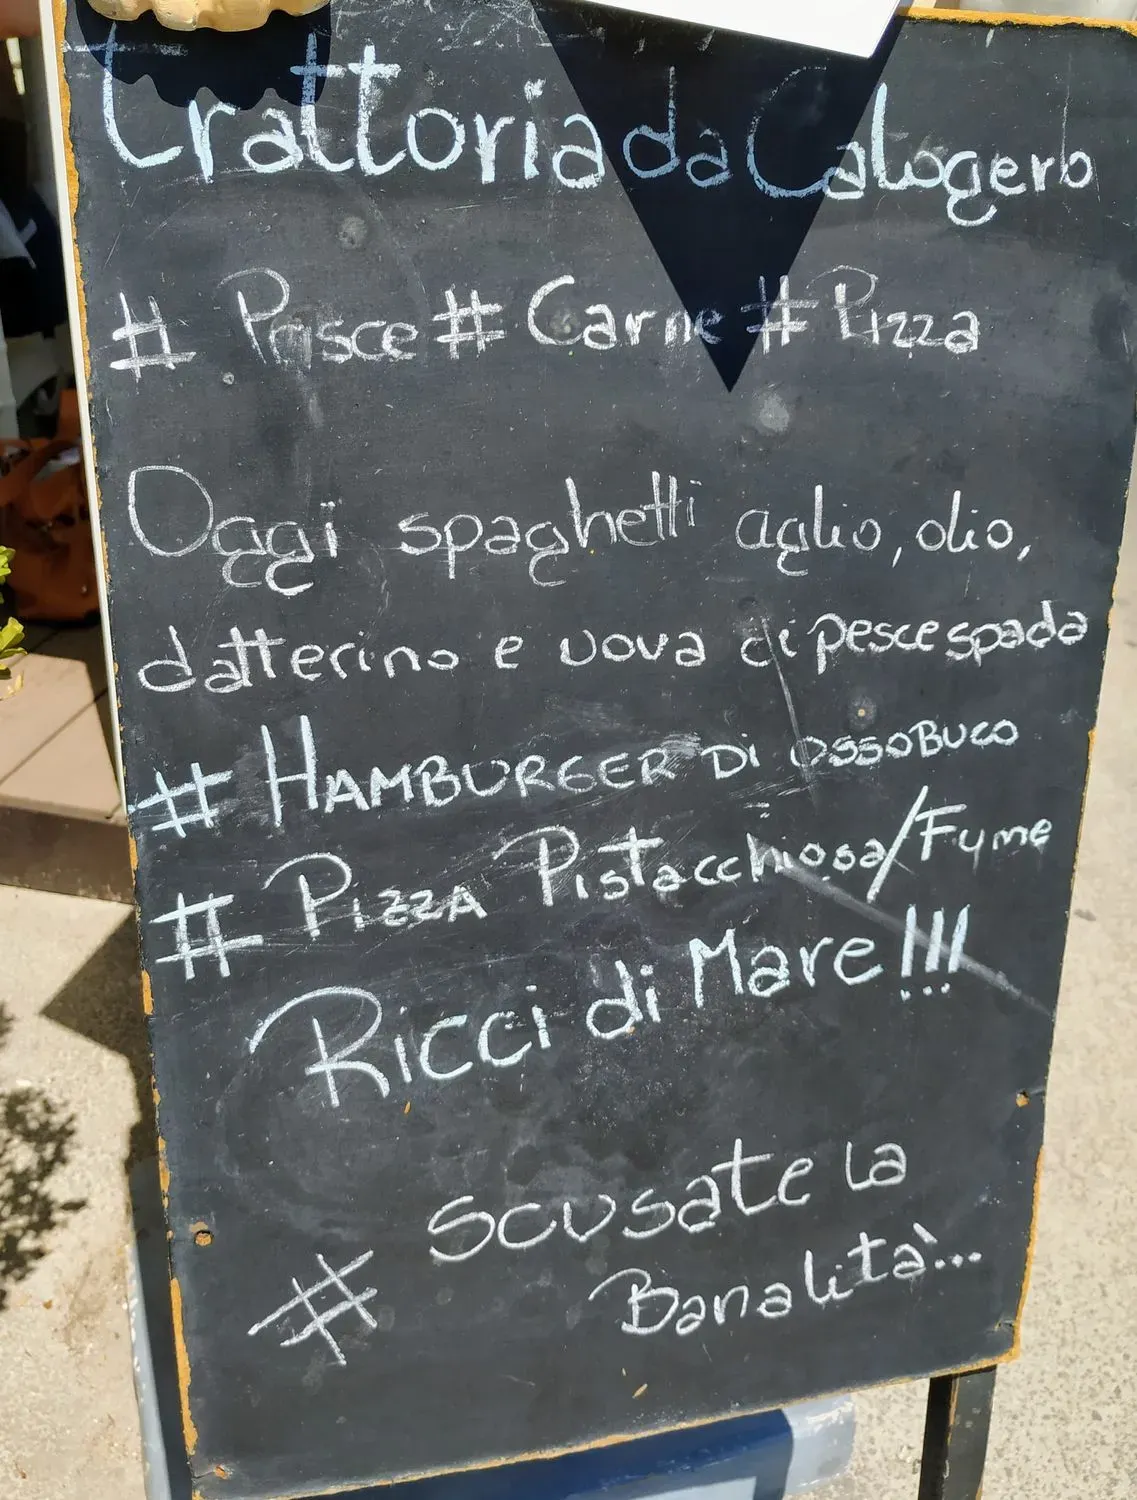 Trattoria da Calogero
# Pesce # Carne # Pizza
Oggi spaghetti aglio, olio,
datterino e uova di pesce spada
# HAMBURGER Di OSSOBUCO
# PizzA Pistacchiosa/Fume
Ricci di Mare!!!
Scusate la
# Banalità...